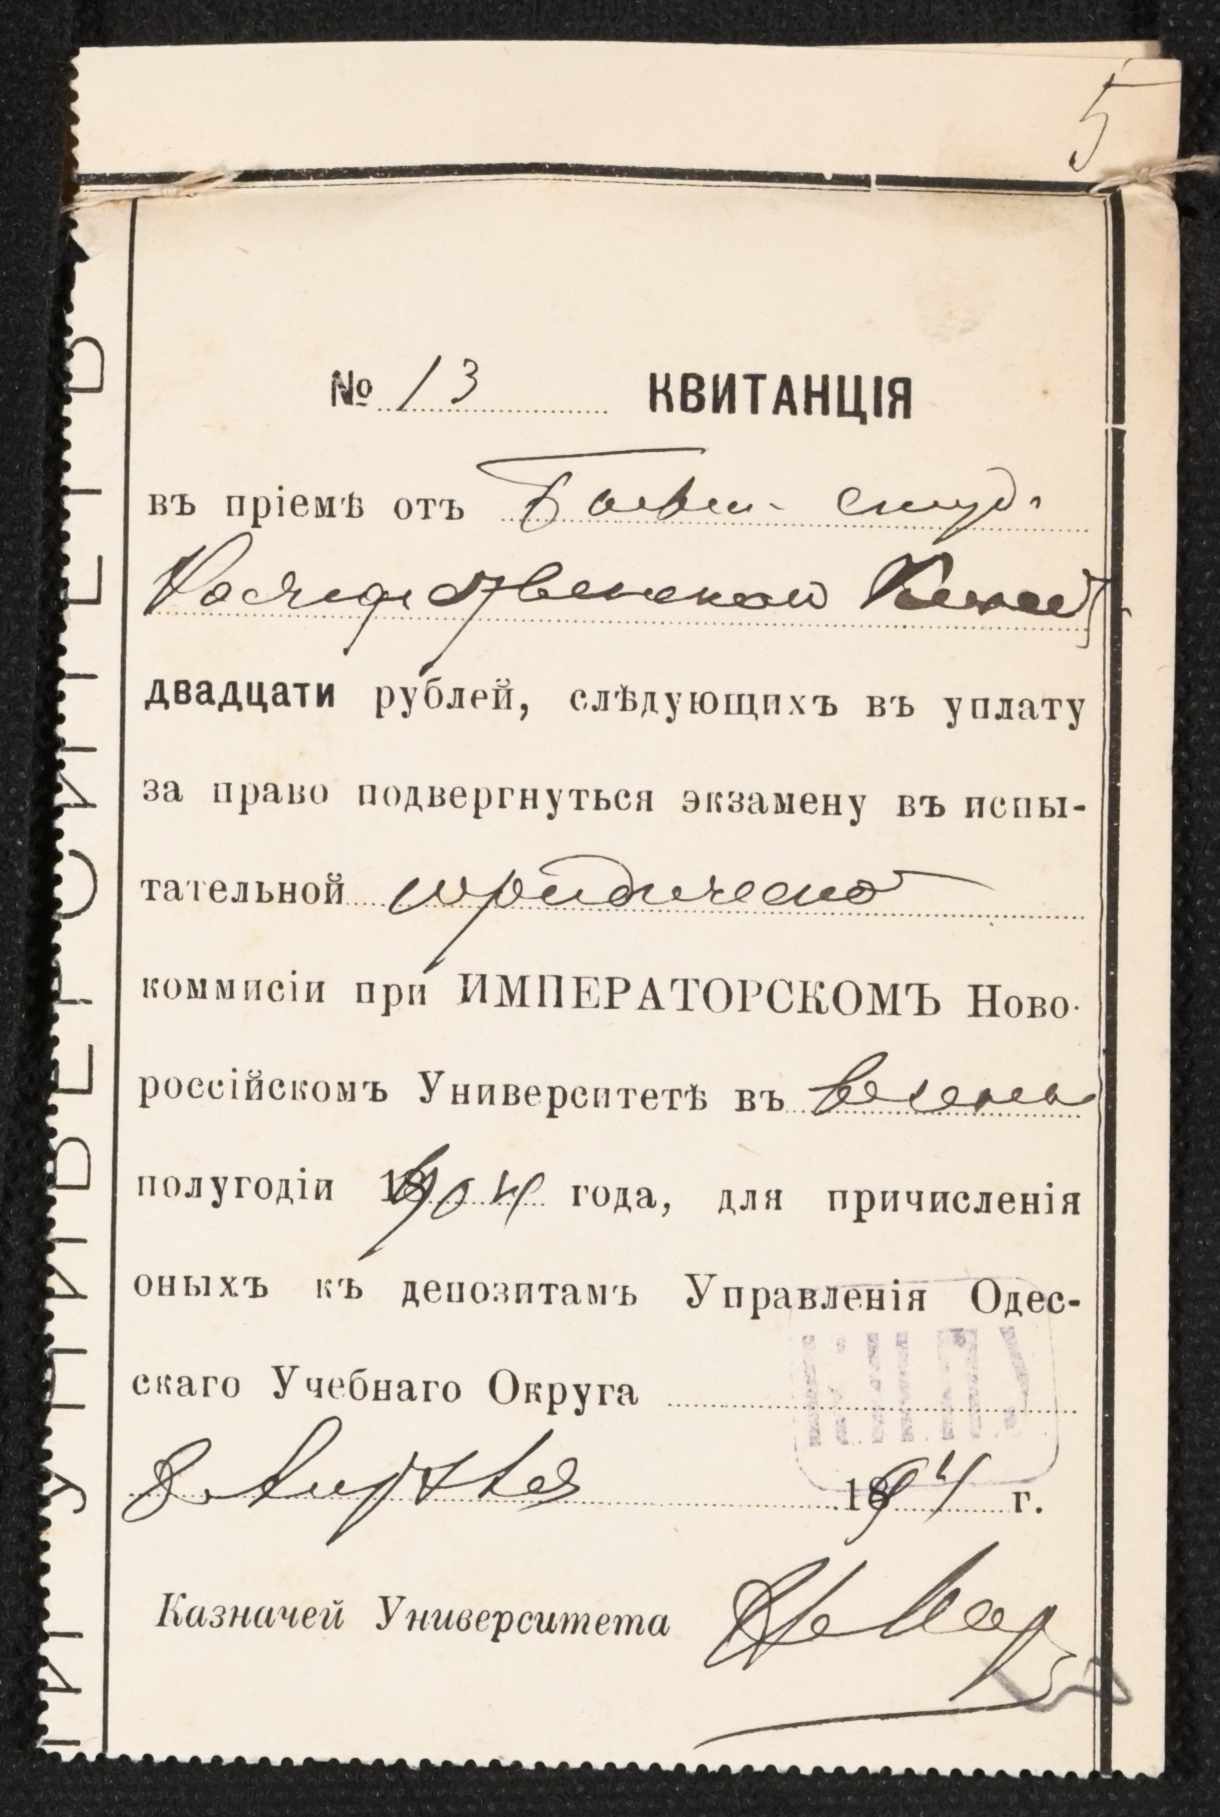 5
№ 13 КВИТАНЦІЯ
въ пріемѣ отъ Бывш. студ.
двадцати рублей, слѣдующихъ въ уплату
за право подвергнуться экзамену въ испы-
тательной юридической
коммисіи при ИМПЕРАТОРСКОМЪ Ново-
россійскомъ Университетѣ въ весен
полугодіи 1904 года, для причисленія
оныхъ къ депозитамъ Управленія Одес-
скаго Учебнаго Округа
8 1904 г.
Казначей Университета
УНИВЕРСИТЕТЪ